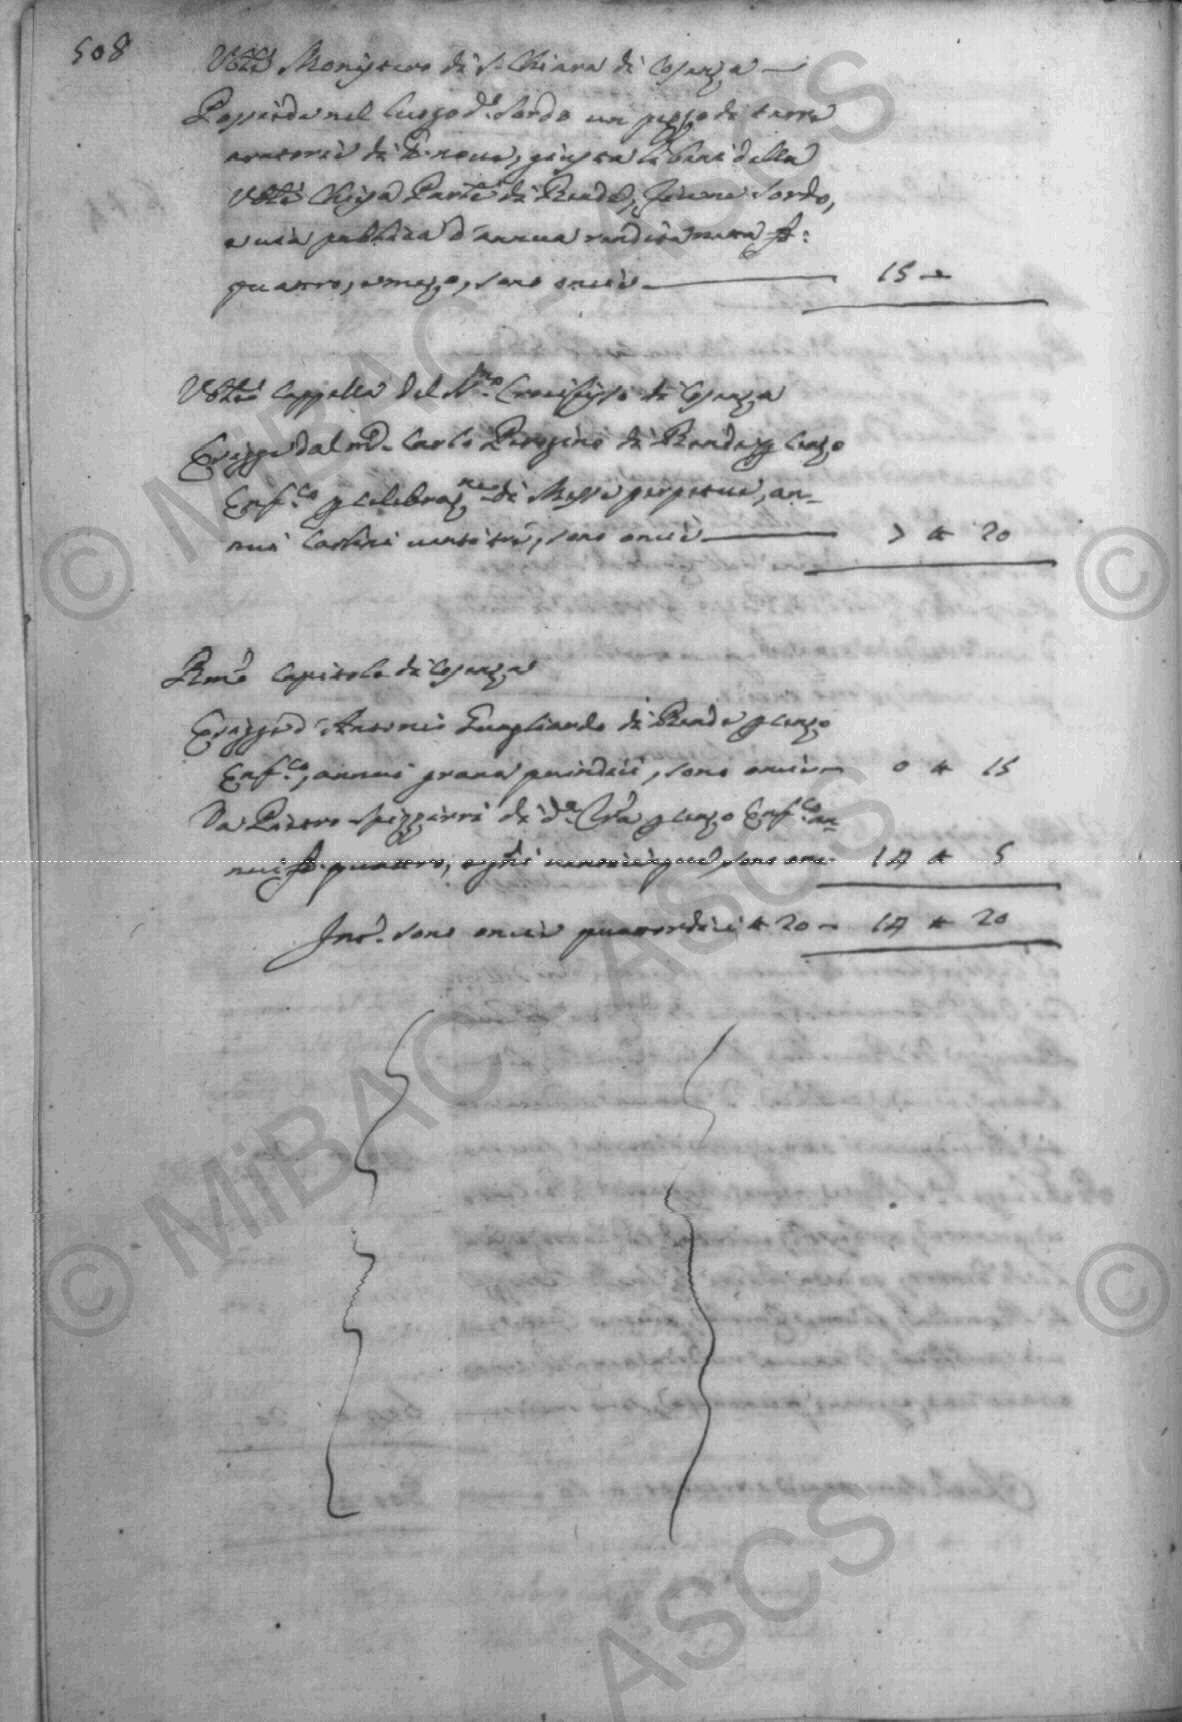 508
Ven.le Monistero di S. Chiara di Cosenza
Possiede nel luogo d.o Sordo un pezzo di terre
aratorie di nove, giusta li beni della
Ven.le Chiesa Parr.le di Rende, Sordo,
e via publica d'annua rendita netta
quattro, e mezo, sono oncie 15
Ven.le Cappella del SS.mo Crocifisso di Cosenza
Esigge dal m.o Carlo Perugino di Rende p censo
Enf.co p celebraz.ne di Messe perpetue, an-
nui Carlini ventitrè, sono oncie 7 20
R.mo Capitolo di Cosenza
Esigge d'Antonio Guagliardo di Rende p censo
Enf.co, annui grana quindici, sono oncie 0 15
Da Pietro Spizzirri di d.a T'ra p censo Enf.co an-
nui quattro, e g.ni venticinque sono onc. 14 5
Int.o sono oncie quattordici 20 14 20
© MiBAC - ASCS ©
© MiBAC - ASCS ©
ASCS